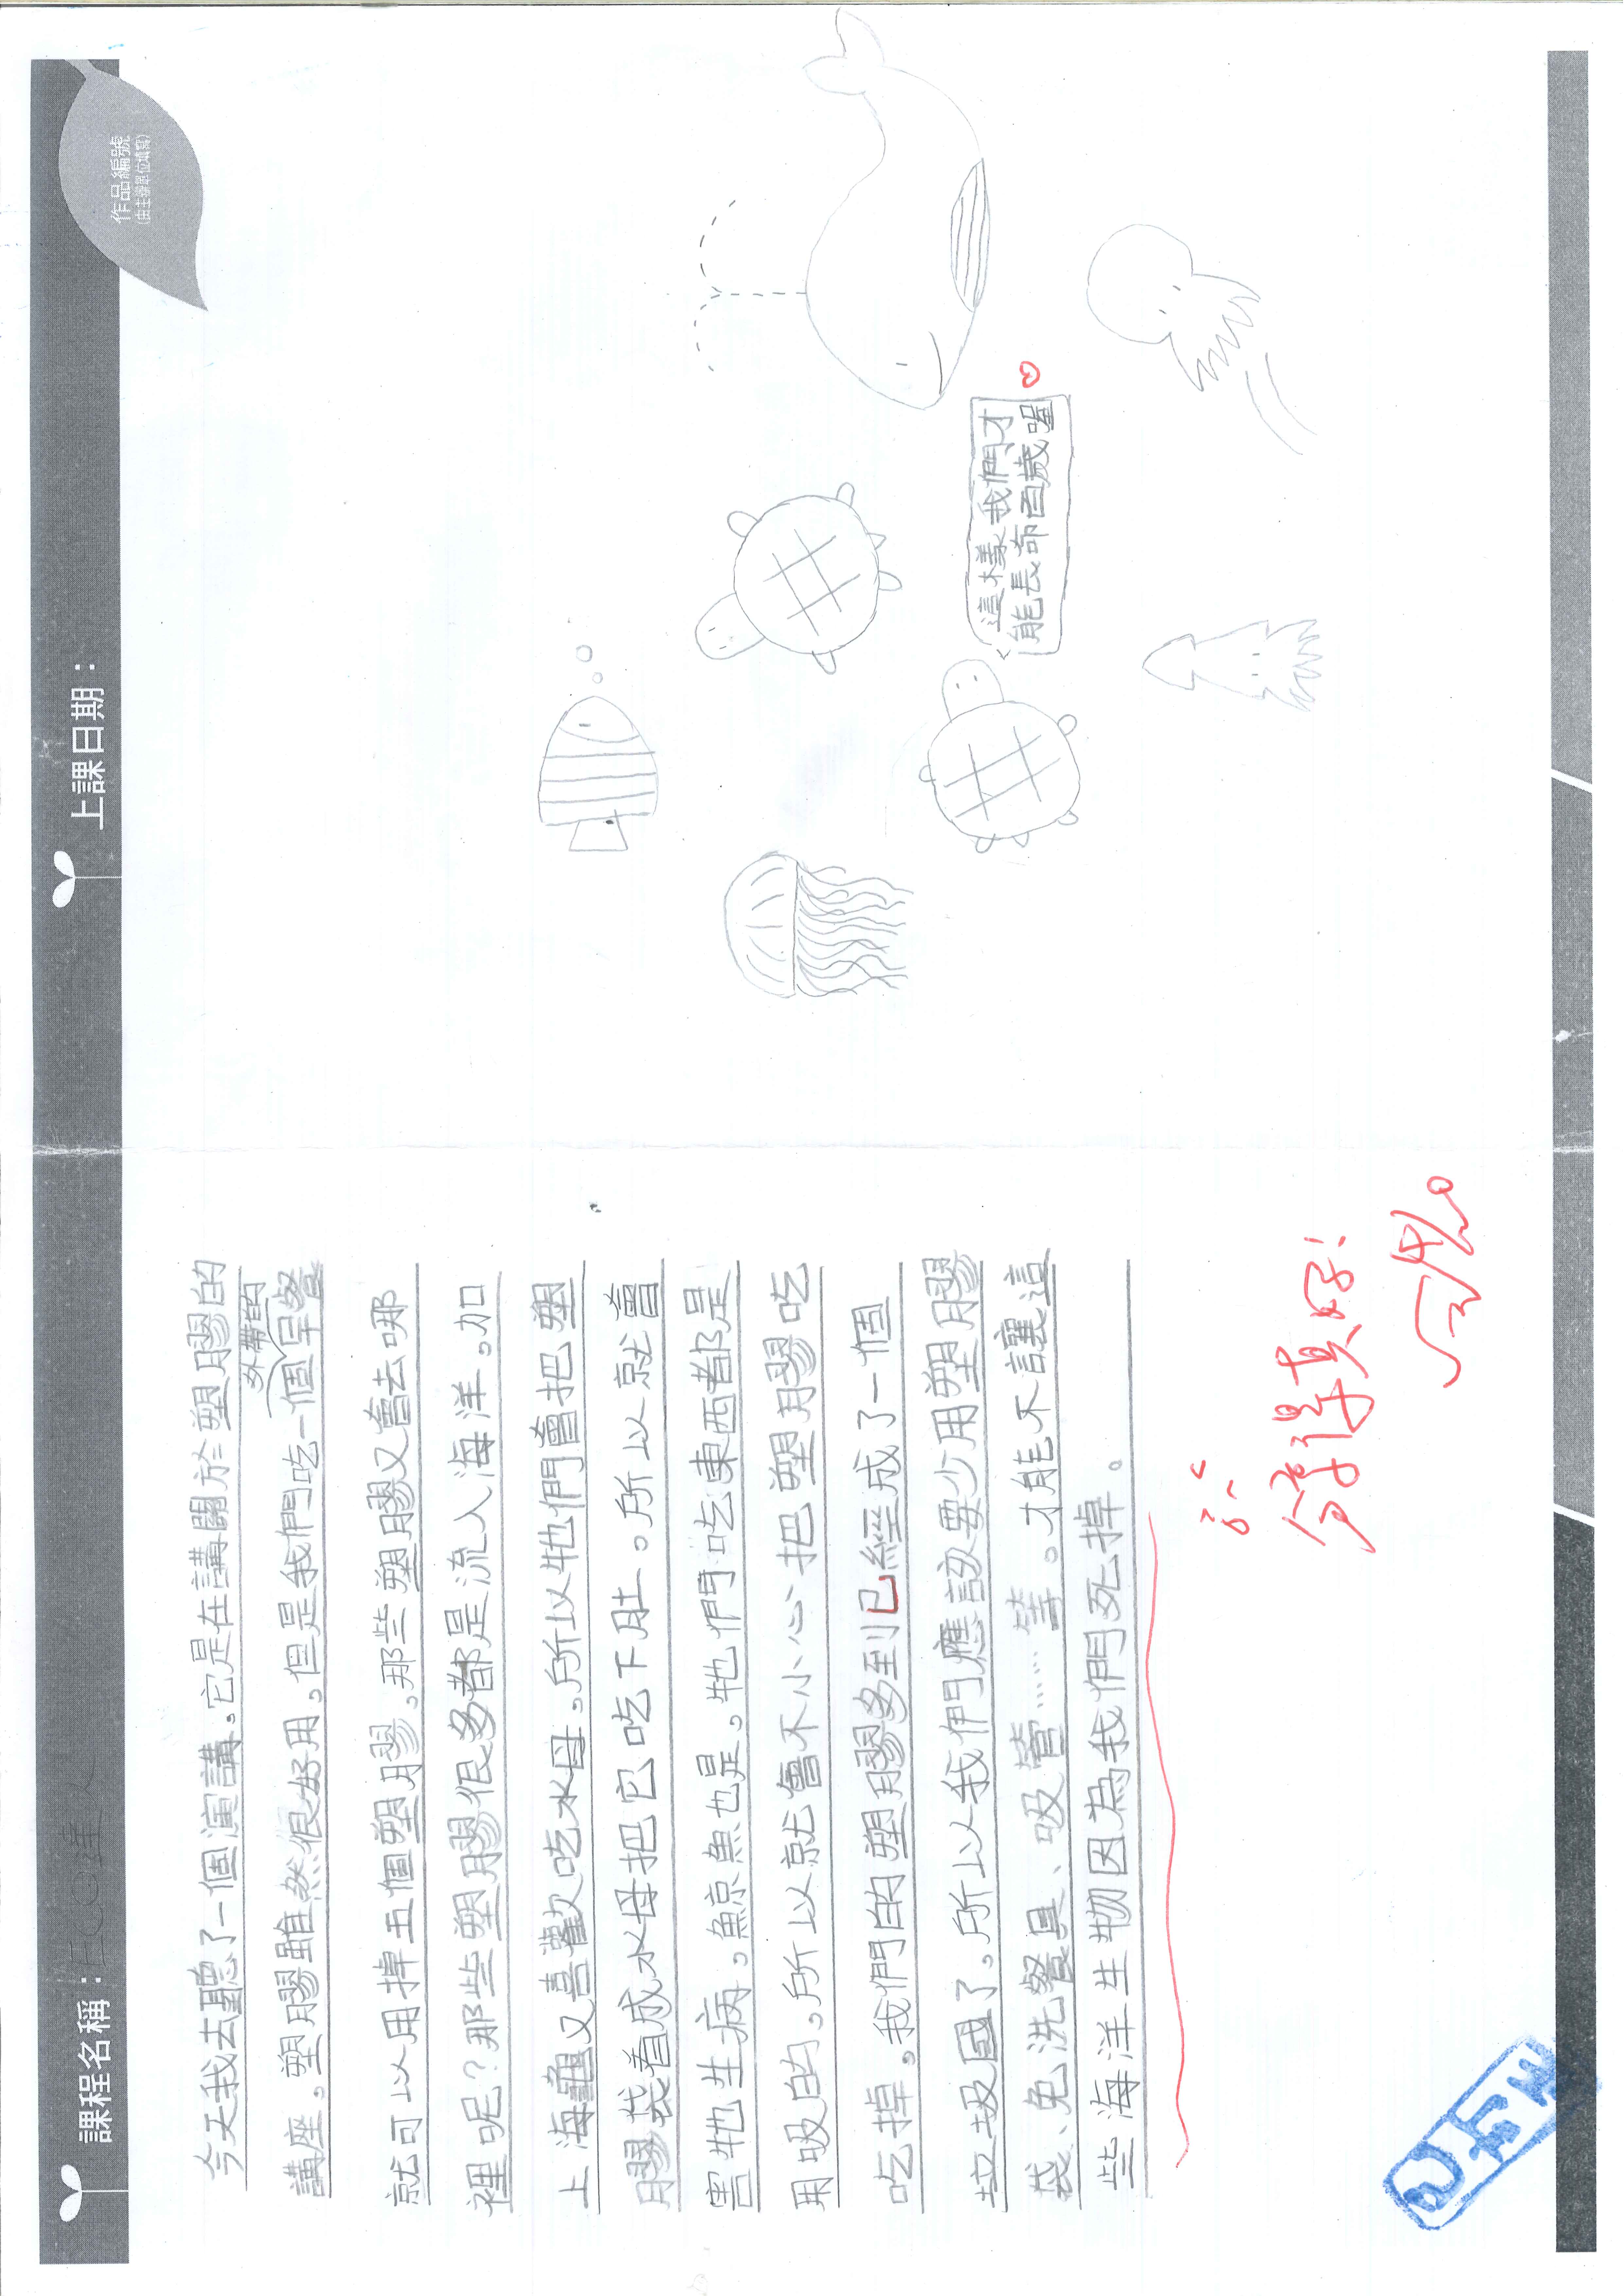 課程名稱：ECO達人
今天我去聽了一個演講。它是在講關於塑膠的
講座。塑膠雖然很好用。但是我們吃一個外帶的早餐
就可以用掉五個塑膠。那些塑膠又會去哪
裡呢？那些塑膠很多都是流入海洋。加
上海龜又喜歡吃水母。所以牠們會把塑
膠袋看成水母把它吃下肚。所以就會
害牠生病。鯨魚也是。牠們吃東西都是
用吸的。所以就會不小心把塑膠吃
吃掉。我們的塑膠多到已經成了一個
垃圾國了。所以我們應該要少用塑膠
袋、免洗餐具、吸管……等。才能不讓這
些海洋生物因為我們死掉。
上課日期：
作品編號
(由主辦單位填寫)
這樣我們才
能長命百歲喔